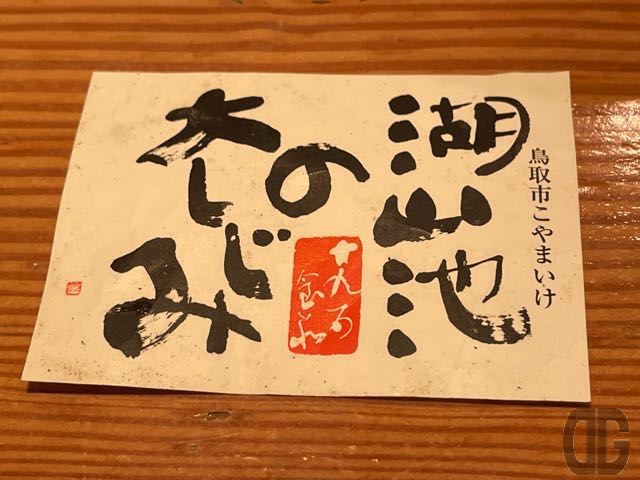 鳥取市こやまいけ
湖山池
の
大しじみ
DG